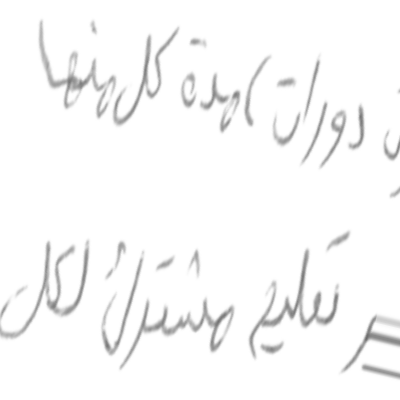 دورات) مدة كل منها
تعليم مشترك لكل